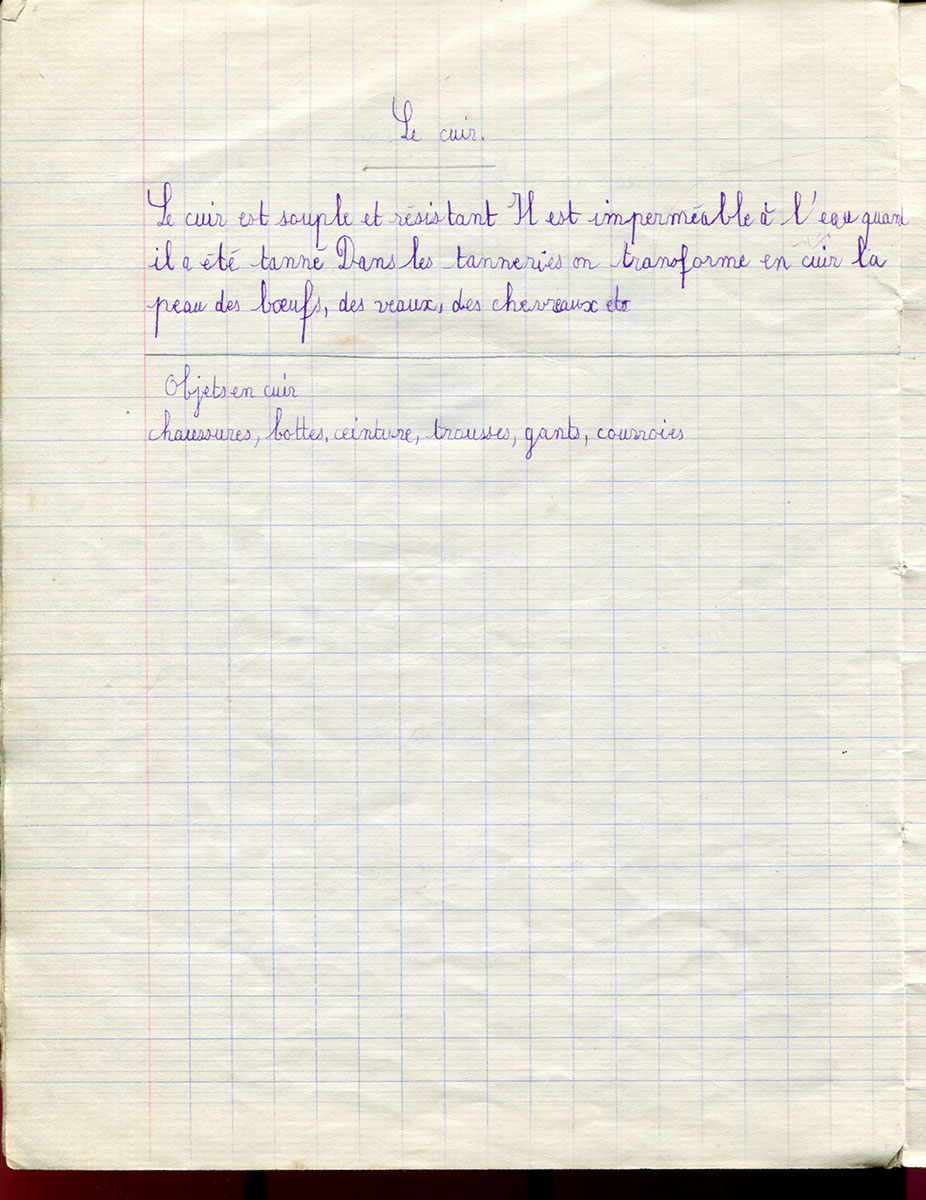 Le cuir.
Le cuir est souple et résistant Il est imperméable à l'eau quant
il a été tanné Dans les tanneries on transforme en cuir la
peau des bœufs, des veaux, des chevreaux etc
Objets en cuir
chaussures, bottes, ceinture, trousses, gants, courroies